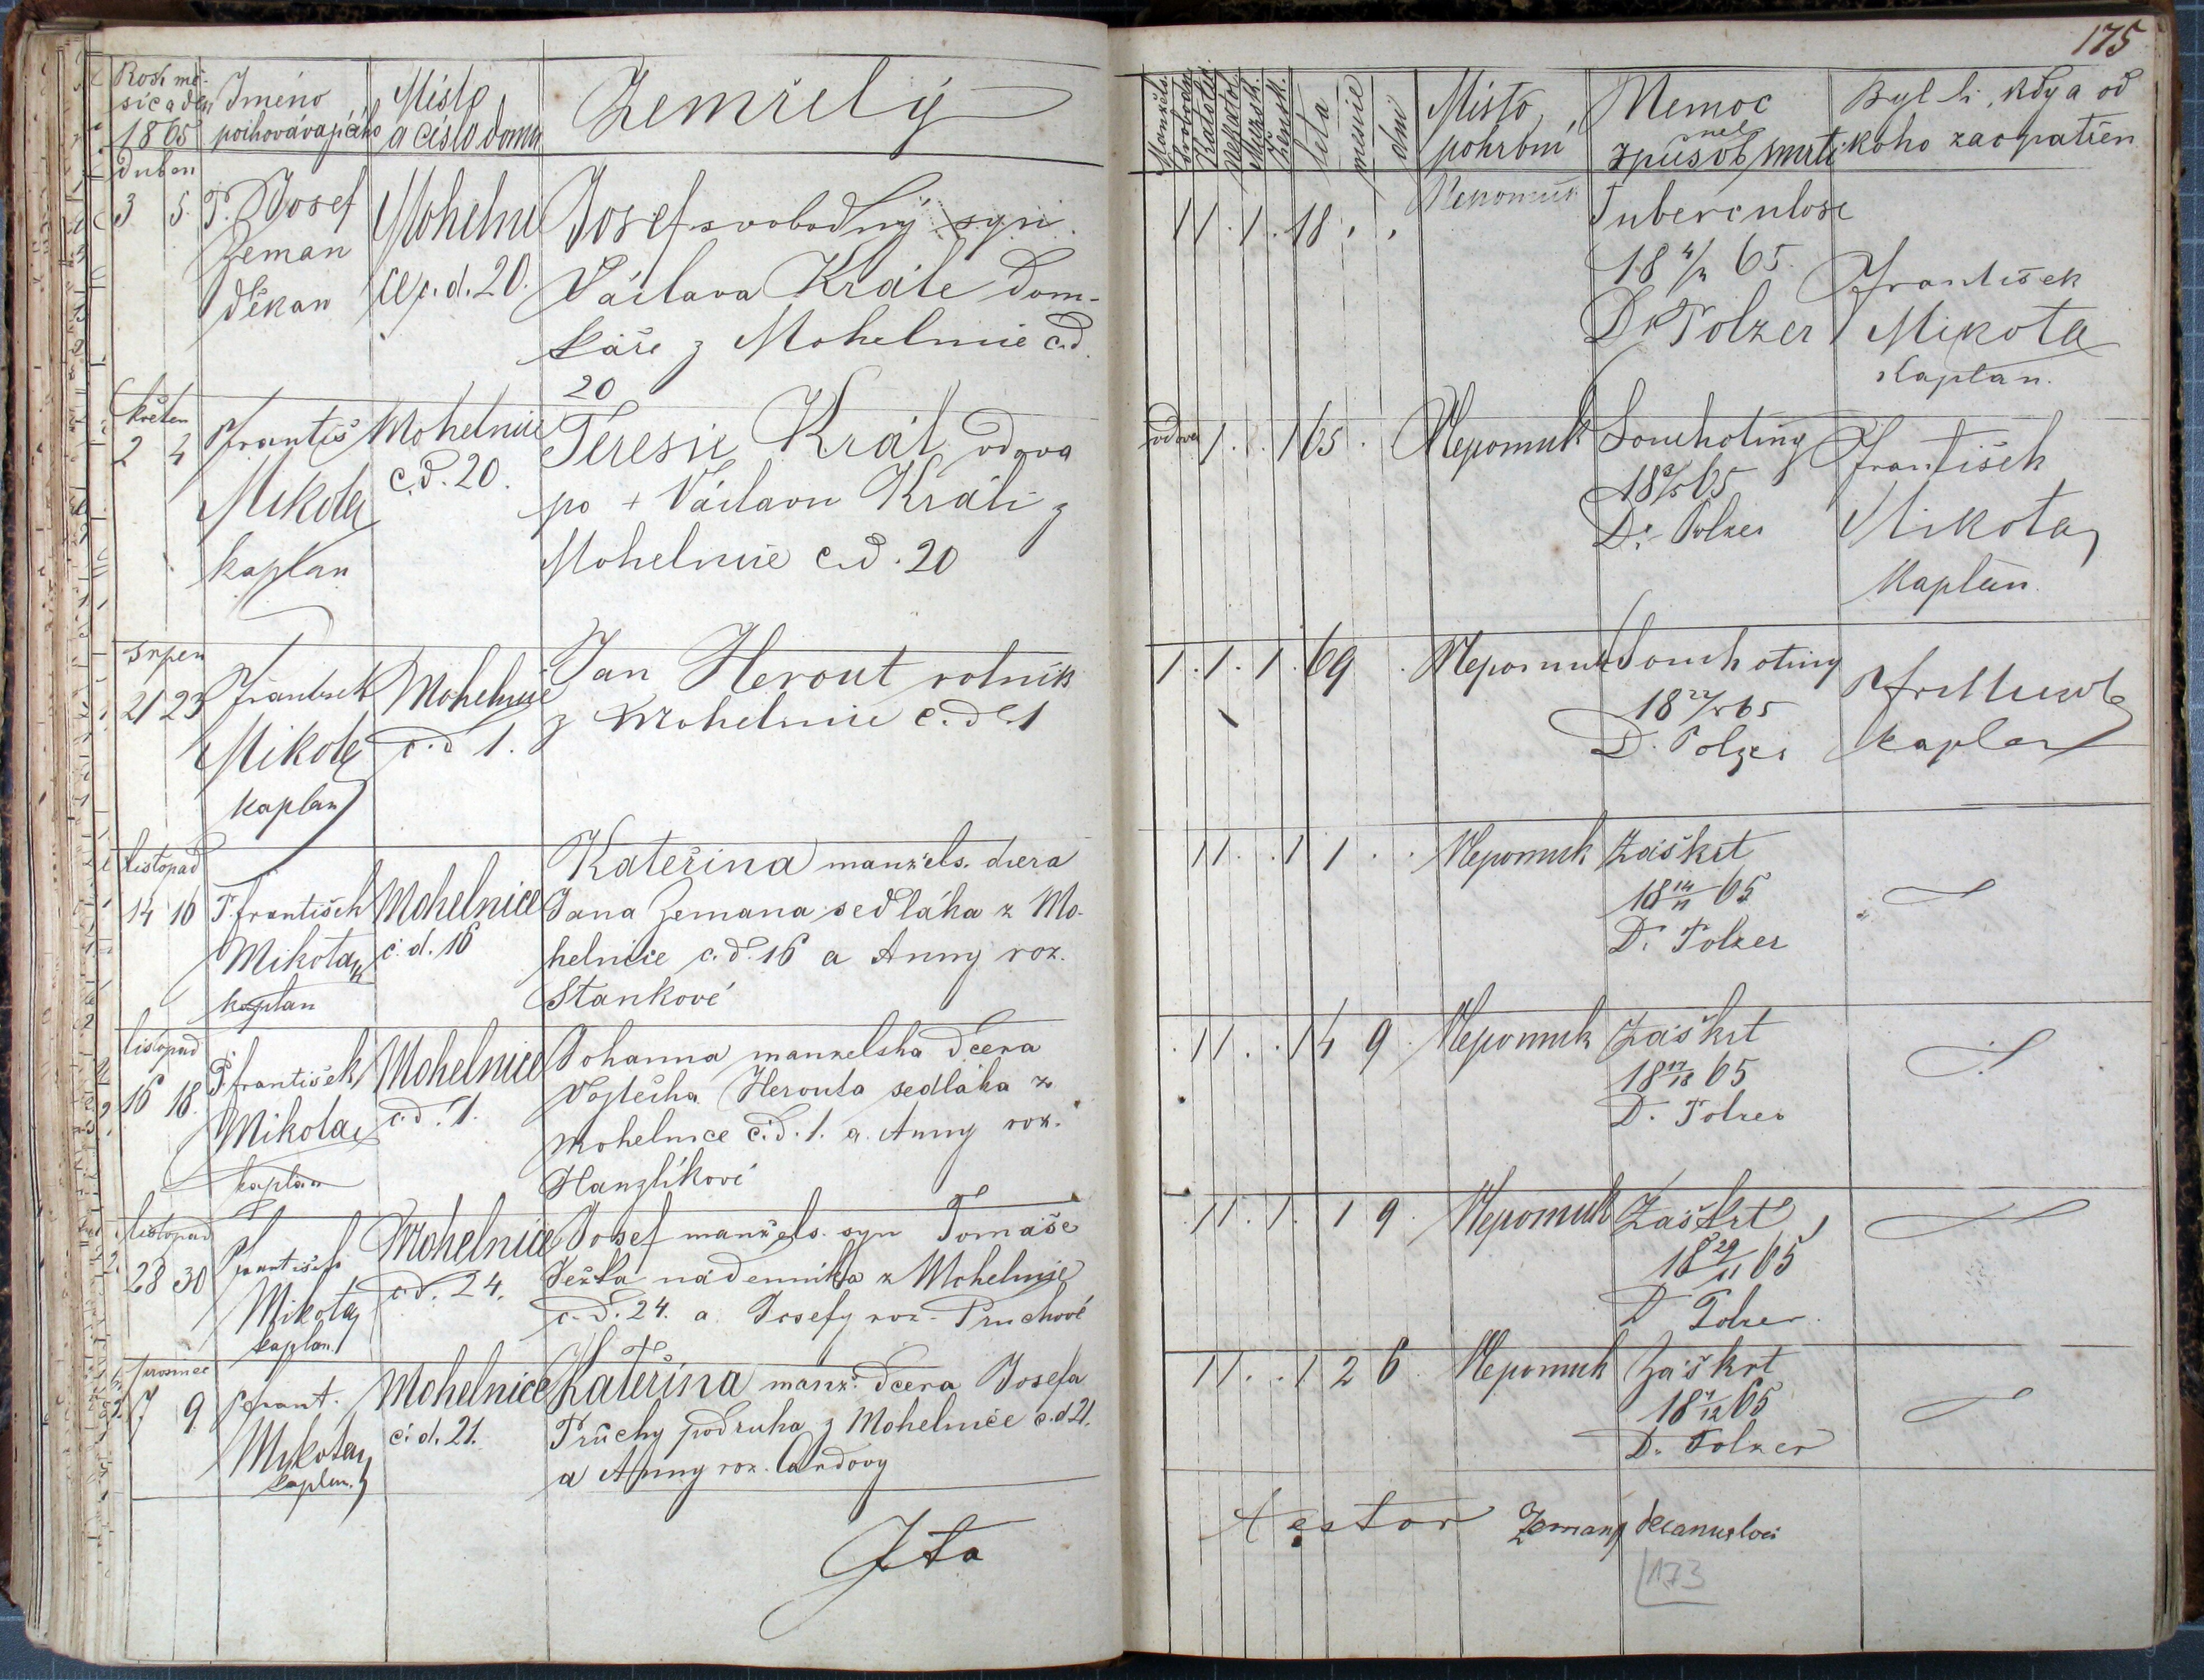 175
Rok mě-
síc a den
1865
Jméno
pochovávajícího
Místo
a číslo domu
Zemřelý
Manžels.
Svoboda.
Katolic.
Nekatol.
Mužsk.
Žensk.
léta
měsíce
dní
Místo
pohrbní
Nemoc
neb
způsob smrti
Byl li, kdy a od
koho zaopatřen
duben
3 5.
P. Josef
Zeman
děkan
Mohelni
ce č. d. 20.
Josef svobodný syn
Václava Krále dom-
káře z Mohelnice č.d.
20
1 1 . 1 . 18 . .
Nepomuk
Tuberculose
18 4/4 65.
Dr Polzer
František
Mikota
kaplan.
květen
2 4
František
Mikota
kaplan
Mohelnice
č.d. 20.
Teresie Král vdova
po + Václavu Králi z
Mohelnice č.d. 20
vdova 1 . . 1 65 .
Nepomuk
Souchotiny
18 3/5 65
Dr. Polzer
František
Mikota
Kaplan.
srpen
21 23
František
Mikota
kaplan
Mohelnice
č.d 1.
Jan Herout rolník
z Mohelnice č. d. 1
1 . 1 . 1 . 69 .
Nepomuk
Souchotiny
18 65
D. Polzer
kaplan
listopad
14 16
P. František
Mikota
kaplan
Mohelnice
č. d. 16
Kateřina manžels. dcera
Jana Zemana sedláka z Mo-
helnice č. d. 16 a Anny roz.
Stankové
1 1 . . 1 1 . .
Nepomuk
Záškrt
18 14/11 65
D. Polzer
listopad
16 18.
P. František
Mikota
kaplan
Mohelnice
č.d. 1.
Johanna manzelska dcera
Vojtěcha Herouta sedláka z
Mohelnice č.d. 1. a. Anny roz.
Hanzlíkové
1 1 . . 1 4 9 .
Nepomuk
Záškrt
18 65
D. Polzer
listopad
28 30
František
Mikota
kaplan.
Mohelnice
č.d. 24.
Josef manžels. syn Tomáše
Ježka nádenníka z Mohelnice
č. d. 24. a Josefy roz. Pruchové
1 1 . 1 . 1 9 .
Nepomuk
Záškrt
18 29/11 65
D Polzer
prosinec
7 9
P. Frant.
Mikota
kaplan.
Mohelnice
č. d. 21.
Kateřina manž. dcera Josefa
Průchy podruha z Mohelnice č.d 21.
a Anny roz.
1 1 . . 1 2 6 .
Nepomuk
Záškrt
18 65
D. Polzer
Ita
testor Zeman decanus loci
173